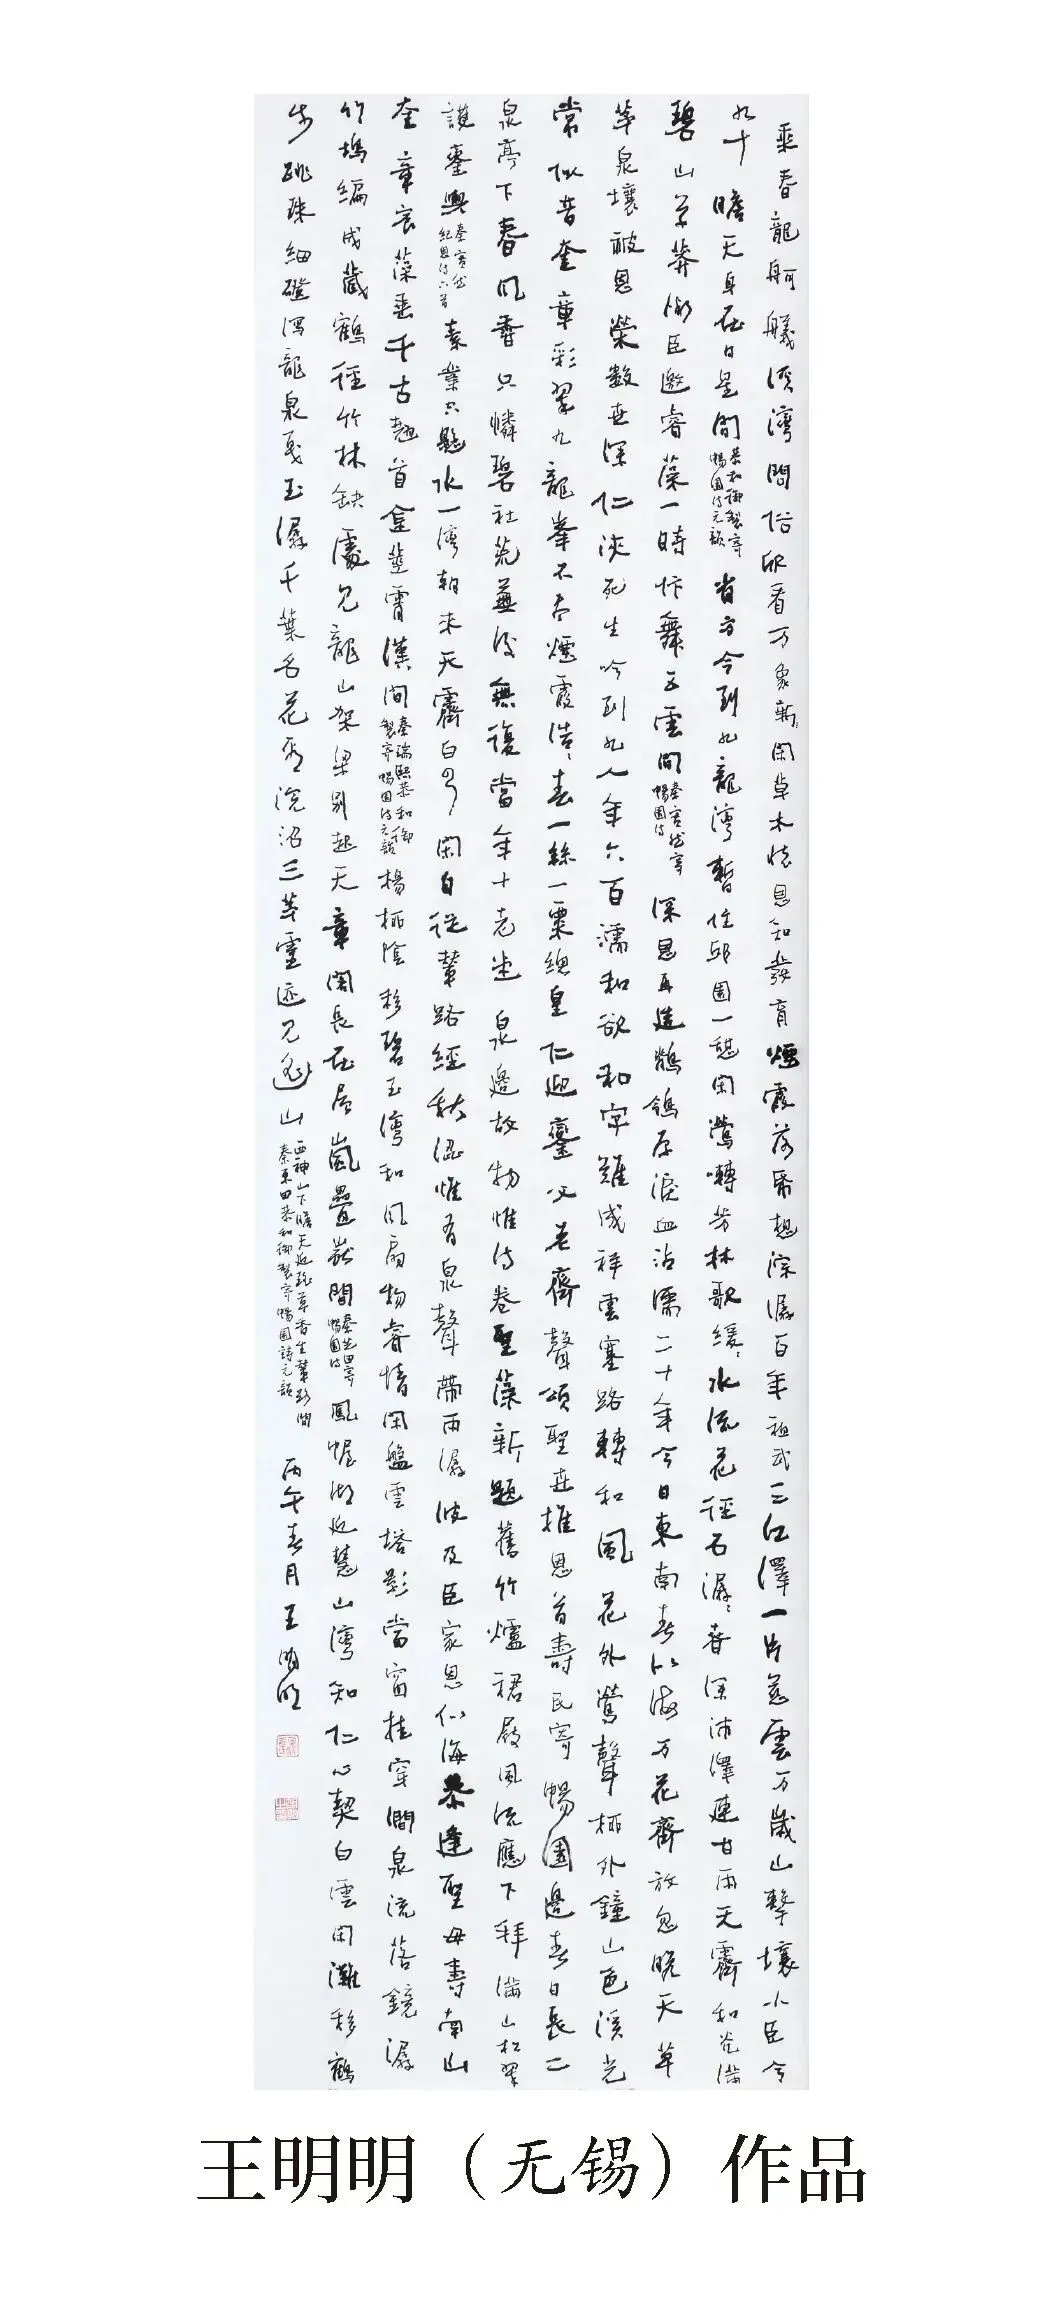 乘春龍舸艤溪灣問俗欣看万象新閑草木懷恩知發育煙霞落筆想淙潺百年祖武三江澤一片慈雲万歲山擊壤小臣今
九十瞻天身在日星間恭和御製寄暢園詩元韻省方今到九龍灣暫住邱園一憩閑鶯囀芳林歌緩緩水流花徑石潺潺春深沛澤連甘雨天霽和光滿
碧山草莽微臣邀睿藻一時忭舞五雲間秦實然寄暢園詩深恩再造鶺鴒原淚血沾濡二十年今日東南春似海万花齊放忽晚天草
草泉壤被恩榮數世深仁浹死生吟到九人年六百濡和欲和字難成祥雲塞路轉和風花外鶯聲柳外鐘山色溪光
常似昔奎章彩翠九龍峯不有煙霞浩春一絲一粟總皇仁迎鑾父老齊聲頌聖世推恩首壽民寄暢園邊春日長二
泉亭下春風香只憐碧社荒蕪後無復當年十老堂泉邊故物惟詩卷聖藻新題舊竹爐裙屐風流應下拜滿山松翠
護鑾輿秦實然紀恩詩六首素業只懸水一灣朝來天霽白雲閑自從輦路經秋澀惟有泉聲帶雨潺波及臣家恩似海恭逢聖母壽南山
奎章宸藻垂千古翹首蓬萊霄漢間秦瑞熙恭和御製寄暢園詩元韻楊柳陰移碧玉灣和風扇物睿情閑盤雲塔影當窗挂穿澗泉流落鏡潺
竹塢編成藏鶴徑竹林缺處見龍山架梁別起天章閣長在層嵐疊巘間秦芝田寄暢園詩鳳幄湖近慧山灣知仁心契白雲閑灘移鶴
步跳珠細磴瀉龍泉戛玉潺千葉名花香浣沼三茅靈迹見遙山西神山下瞻天近瑤草香生輦路間秦東田恭和御製寄暢園詩元韻丙午春月王明明
王明明（无锡）作品